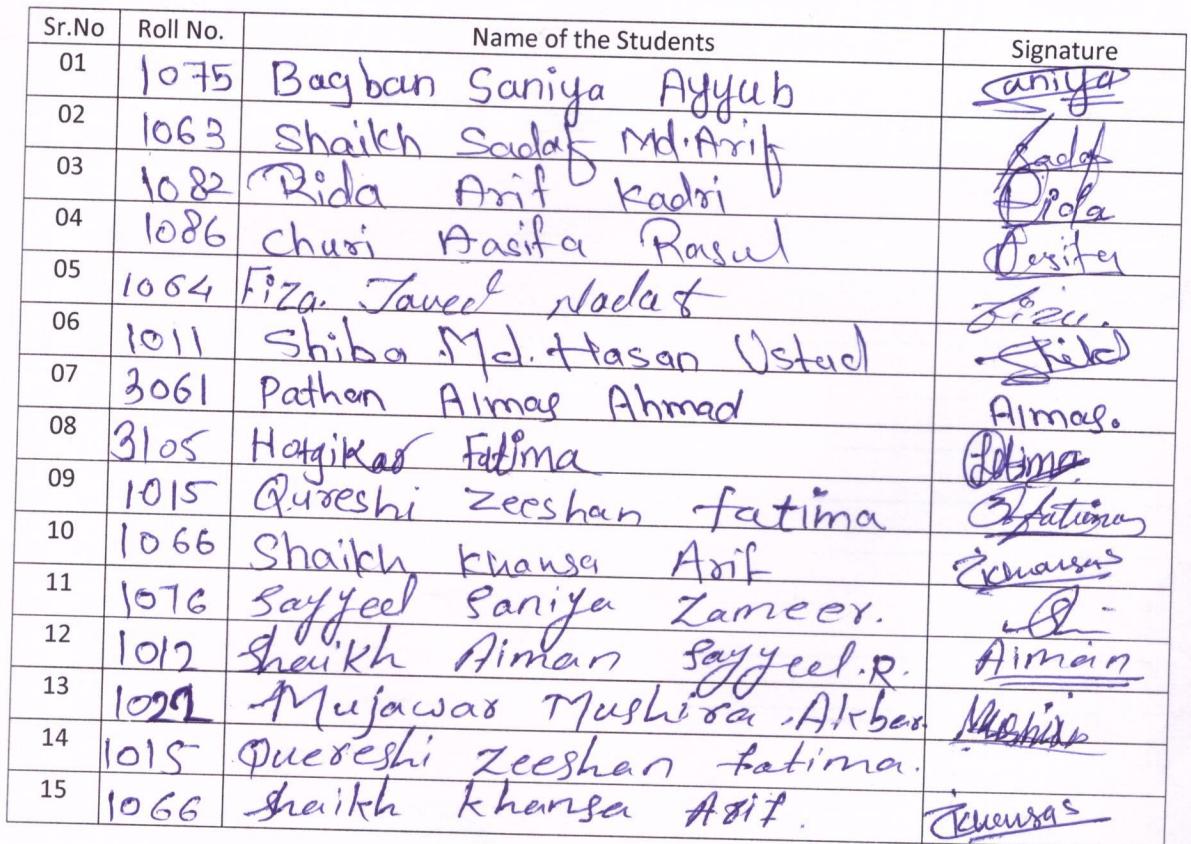 Sr.No Roll No. Name of the Students Signature
01 1075 Bagban Saniya Ayyub Saniya
02 1063 Shaikh Sadaf Md.Arif Sadaf
03 1082 Rida Arif Kadri Rida
04 1086 Churi Aasifa Rasul Aasifa
05 1064 Fiza. Javed Nadaf Fiza.
06 1011 Shiba Md. Hasan Ustad
07 3061 Pathan Almas Ahmad Almas.
08 3105 Hotgikar Fatima Fatima
09 1015 Qureshi Zeeshan fatima Zfatima
10 1066 Shaikh Khansa Arif Khansas
11 1076 Sayyed Saniya Zameer.
12 1012 Shaikh Aiman Sayyed.R. Aiman
13 Mujawar Mushira .Akbar
14 1015 Quereshi Zeeshan fatima.
15 1066 Shaikh Khansa Arif. Khansas